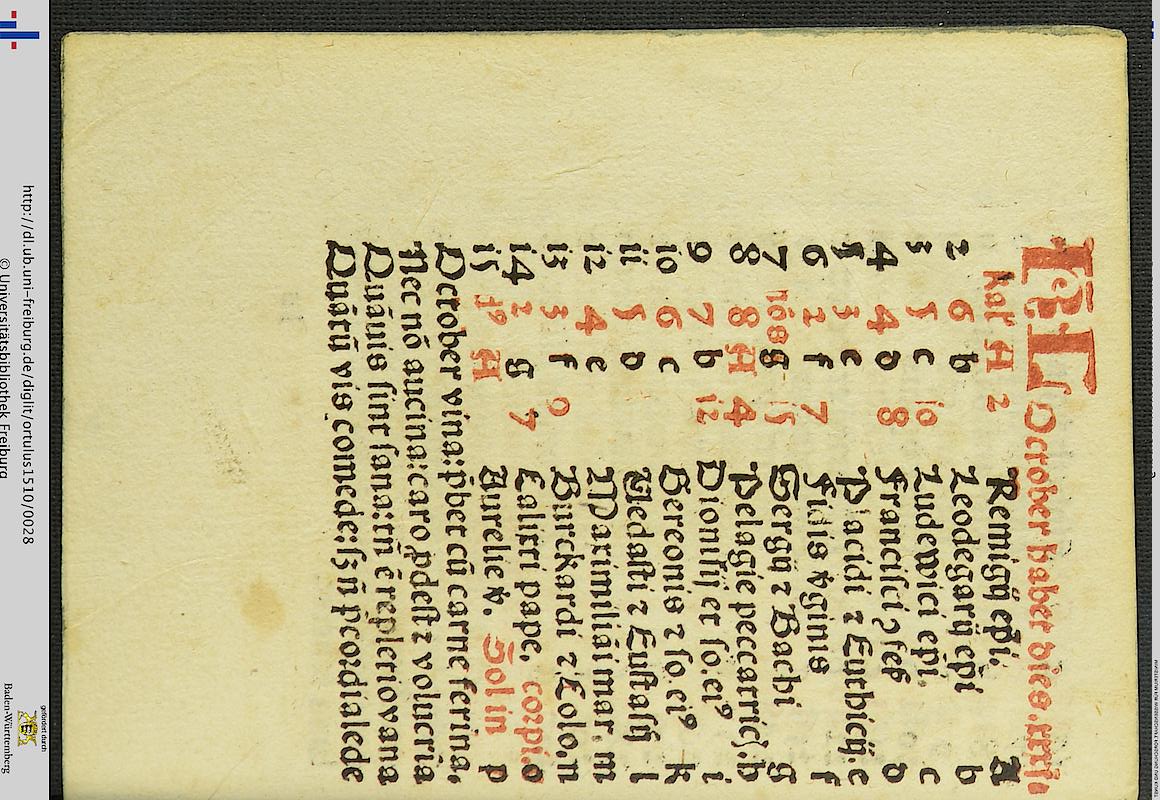 KL October habet dies.xxxi
kal A 2 Remigij epi. A
2 6 b Leodegarij epi b
3 5 c 10 Ludewici epi. c
4 4 d 8 Francisci ɔfes d
5 3 e Placidi ⁊ Eutbicij. e
6 2 f 7 Fidis vginis f
7 iδ8 g 15 Sergij ⁊ Bachi g
8 8 A 4 Pelagie peccatric̄. h
9 7 b 12 Dionisij et so.ei⁹ i
10 6 c Gereonis ⁊ so.ei⁹ k
11 5 d Vedasti ⁊ Eustasij l
12 4 e Maximiliai mar. m
13 3 f 9 Burckardi ⁊ Colo.n
14 2 g 7 Calixti pape, corpi.o
15 19 A Aurelie v. Sol in p
October vina: p̄bet cū carne ferina,
Nec nō aucina: caro ꝓdest ⁊ volucria
Quāuis sint sana: tn̄ ē repletio vana
Quātū vis comede: sꝫ n̄ pcordia lede
http://dl.ub.uni-freiburg.de/diglit/ortulus1510/0028
© Universitätsbibliothek Freiburg
gefördert durch
Baden-Württemberg